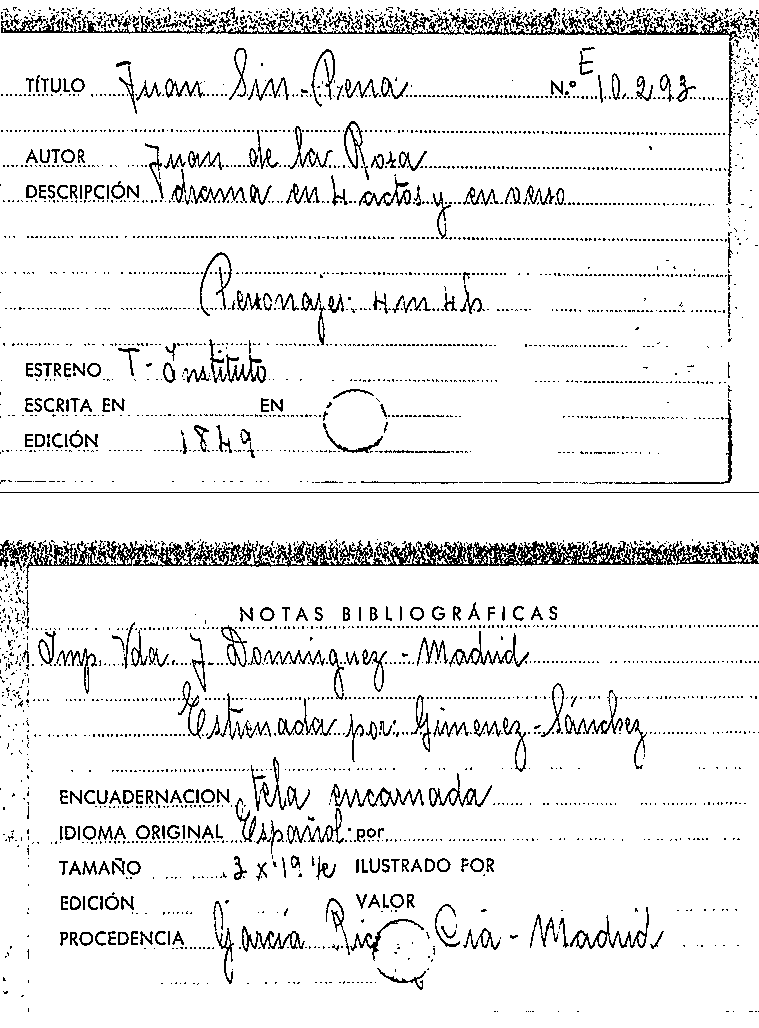 TÍTULO Juan Sin-Pena N.º E 10.293
AUTOR Juan de la Rosa
DESCRIPCIÓN drama en 4 actos y en verso
Personajes: 4m 4h
ESTRENO T- Instituto
ESCRITA EN EN
EDICIÓN 1849
NOTAS BIBLIOGRÁFICAS
Imp. Vda. J Dominguez - Madrid
Estrenada por: Gimenez-Sánchez
ENCUADERNACION tela encarnada
IDIOMA ORIGINAL Español por
TAMAÑO x 19 ILUSTRADO FOR
EDICIÓN VALOR
PROCEDENCIA García Rico Cia - Madrid